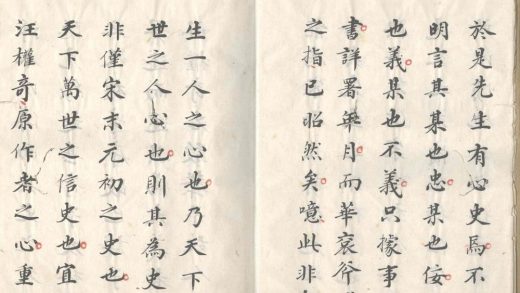 於是先生有心史焉不
明言其某也忠某也佞
也義某也不義只據事
書詳署年月而華衮斧
之指已昭然矣噫此非
生一人之心也乃天下
世之人心也則其為史
非僅宋末元初之史也
天下萬世之信史也宜
汪權奇原作者之心重